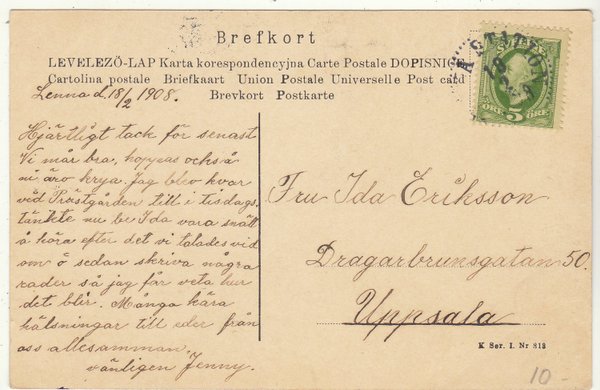 Brefkort
LEVELEZÖ-LAP Karta korespondencyjna Carte Postale DOPISNICE
Cartolina postale Briefkaart Union Postale Universelle Post card
Brevkort Postkarte
Lenna d. 18/2 1908.
Hjärtligt tack för senast
Vi mår bra, hoppas också
ni äro krya. Jag blev kvar
vid Prästgården till i tisdags.
tänkte nu be Ida vara snäll
å höra efter det vi talades vid
om å sedan skriva några
rader så jag får veta hur
det blir. Många kära
hälsningar till eder från
oss allesamman.
vänligen Jenny.
SVERIGE
ÖRE 5 ÖRE
Fru Ida Eriksson
Dragarbrunsgatan 50.
Uppsala
K Ser. I. Nr 813
10 -